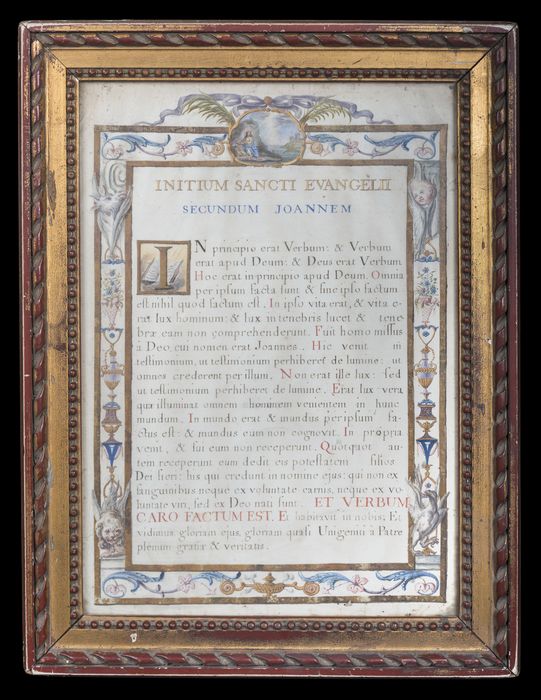 INITIUM SANCTI EVANGELII
SECUNDUM JOANNEM
IN principio erat Verbum: & Verbum
erat apud Deum: & Deus erat Verbum
Hoc erat in principio apud Deum. Omnia
per ipsum facta sunt & sine ipso factum
est nihil quod factum est. In ipso vita erat, & vita e-
rat lux hominum: & lux in tenebris lucet & tene-
bræ eam non comprehenderunt. Fuit homo missus
à Deo, cui nomen erat Joannes. Hic venit in
testimonium, ut testimonium perhiberet de lumine: ut
omnes crederent per illum. Non erat ille lux: sed
ut testimonium perhiberet de lumine. Erat lux vera
quæ illuminat omnem hominem venientem in hunc
mundum. In mundo erat & mundus per ipsum fa-
ctus est: & mundus eum non cognovit. In propria
venit, & sui eum non receperunt. Quotquot au-
tem receperunt eum dedit eis potestatem filios
Dei fieri: his qui credunt in nomine ejus: qui non ex
sanguinibus neque ex voluntate carnis, neque ex vo-
luntate viri, sed ex Deo nati sunt. ET VERBUM
CARO FACTUM EST. Et habitavit in nobis; Et
vidimus gloriam ejus, gloriam quasi Unigeniti à Patre
plenum gratiæ & veritatis.